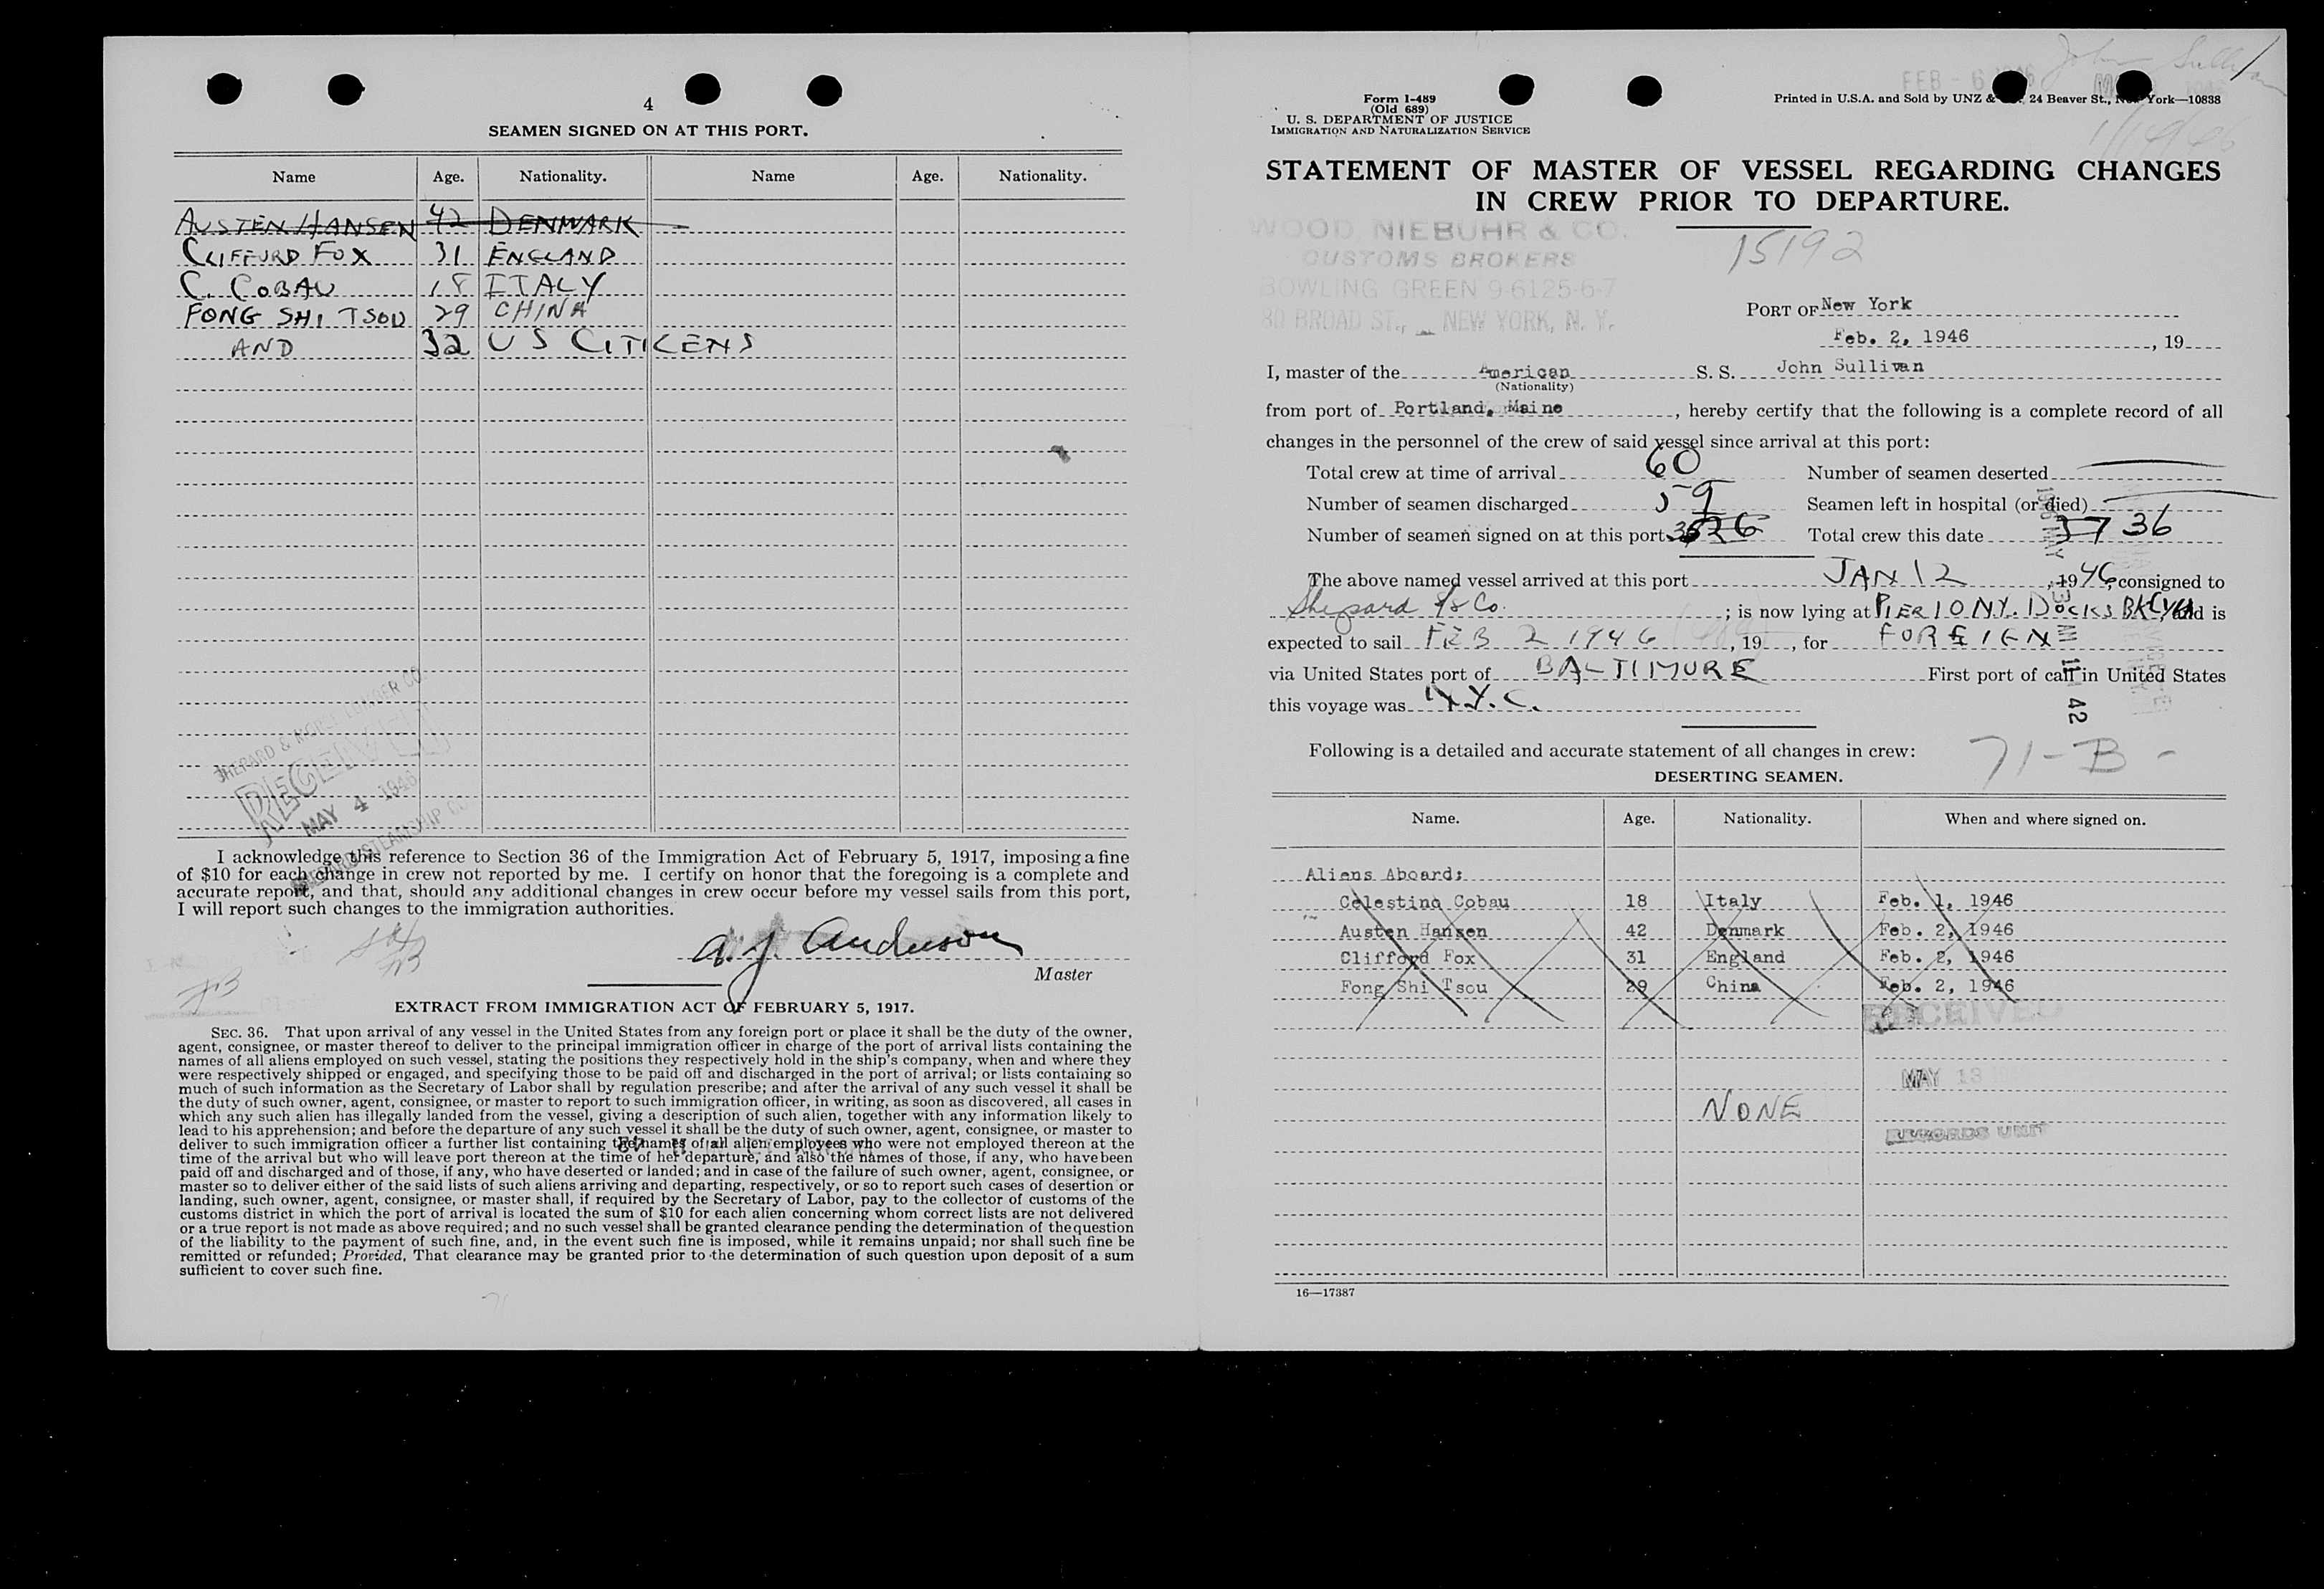 4
SEAMEN SIGNED ON AT THIS PORT.
Name Age. Nationality. Name Age. Nationality.
AUSTEN HANSEN 42 DENMARK
CLIFFORD FOX 31 ENGLAND
C. COBAU 18 ITALY
FONG SHI TSOU 29 CHINA
AND 32 US CITICENS
RECEIVED
MAY 4 1946
I acknowledge this reference to Section 36 of the Immigration Act of February 5, 1917, imposing a fine
of $10 for each change in crew not reported by me. I certify on honor that the foregoing is a complete and
accurate report, and that, should any additional changes in crew occur before my vessel sails from this port,
I will report such changes to the immigration authorities.
A. J. Anderson
Master
EXTRACT FROM IMMIGRATION ACT OF FEBRUARY 5, 1917.
SEC. 36. That upon arrival of any vessel in the United States from any foreign port or place it shall be the duty of the owner,
agent, consignee, or master thereof to deliver to the principal immigration officer in charge of the port of arrival lists containing the
names of all aliens employed on such vessel, stating the positions they respectively hold in the ship's company, when and where they
were respectively shipped or engaged, and specifying those to be paid off and discharged in the port of arrival; or lists containing so
much of such information as the Secretary of Labor shall by regulation prescribe; and after the arrival of any such vessel it shall be
the duty of such owner, agent, consignee, or master to report to such immigration officer, in writing, as soon as discovered, all cases in
which any such alien has illegally landed from the vessel, giving a description of such alien, together with any information likely to
lead to his apprehension; and before the departure of any such vessel it shall be the duty of such owner, agent, consignee, or master to
deliver to such immigration officer a further list containing the names of all alien employees who were not employed thereon at the
time of the arrival but who will leave port thereon at the time of her departure, and also the names of those, if any, who have been
paid off and discharged and of those, if any, who have deserted or landed; and in case of the failure of such owner, agent, consignee, or
master so to deliver either of the said lists of such aliens arriving and departing, respectively, or so to report such cases of desertion or
landing, such owner, agent, consignee, or master shall, if required by the Secretary of Labor, pay to the collector of customs of the
customs district in which the port of arrival is located the sum of $10 for each alien concerning whom correct lists are not delivered
or a true report is not made as above required; and no such vessel shall be granted clearance pending the determination of the question
of the liability to the payment of such fine, and, in the event such fine is imposed, while it remains unpaid; nor shall such fine be
remitted or refunded; Provided, That clearance may be granted prior to the determination of such question upon deposit of a sum
sufficient to cover such fine.
John Sullivan
FEB - 6 1946
Form I-489
(Old 689)
U. S. DEPARTMENT OF JUSTICE
IMMIGRATION AND NATURALIZATION SERVICE
Printed in U.S.A. and Sold by UNZ & 24 Beaver St., New York—10838
STATEMENT OF MASTER OF VESSEL REGARDING CHANGES
IN CREW PRIOR TO DEPARTURE.
WOOD, NIEBUHR & CO.
CUSTOMS BROKERS
BOWLING GREEN 9-6125-6-7
80 BROAD ST., NEW YORK, N. Y.
15192
PORT OF New York
Feb. 2, 1946, 19
I, master of the American S. S. John Sullivan
(Nationality)
from port of Portland, Maine, hereby certify that the following is a complete record of all
changes in the personnel of the crew of said vessel since arrival at this port:
Total crew at time of arrival 60 Number of seamen deserted
Number of seamen discharged 59 Seamen left in hospital (or died)
Number of seamen signed on at this port 35 Total crew this date 37 36
The above named vessel arrived at this port JAN 12, 1946, consigned to
Shepard SS Co.; is now lying at PIER 10 N.Y. DOCKS BKLYN and is
expected to sail FEB 2 1946, 19, for FOREIGN
via United States port of BALTIMORE First port of call in United States
this voyage was N.Y.C.
Following is a detailed and accurate statement of all changes in crew:
71-B-
DESERTING SEAMEN.
Name. Age. Nationality. When and where signed on.
Aliens Aboard:
Celestino Cobau 18 Italy Feb. 1, 1946
Austen Hansen 42 Denmark Feb. 2, 1946
Clifford Fox 31 England Feb. 2, 1946
Fong Shi Tsou 29 China Feb. 2, 1946
RECEIVED
MAY 13
NONE
RECORDS UNIT
16—17387